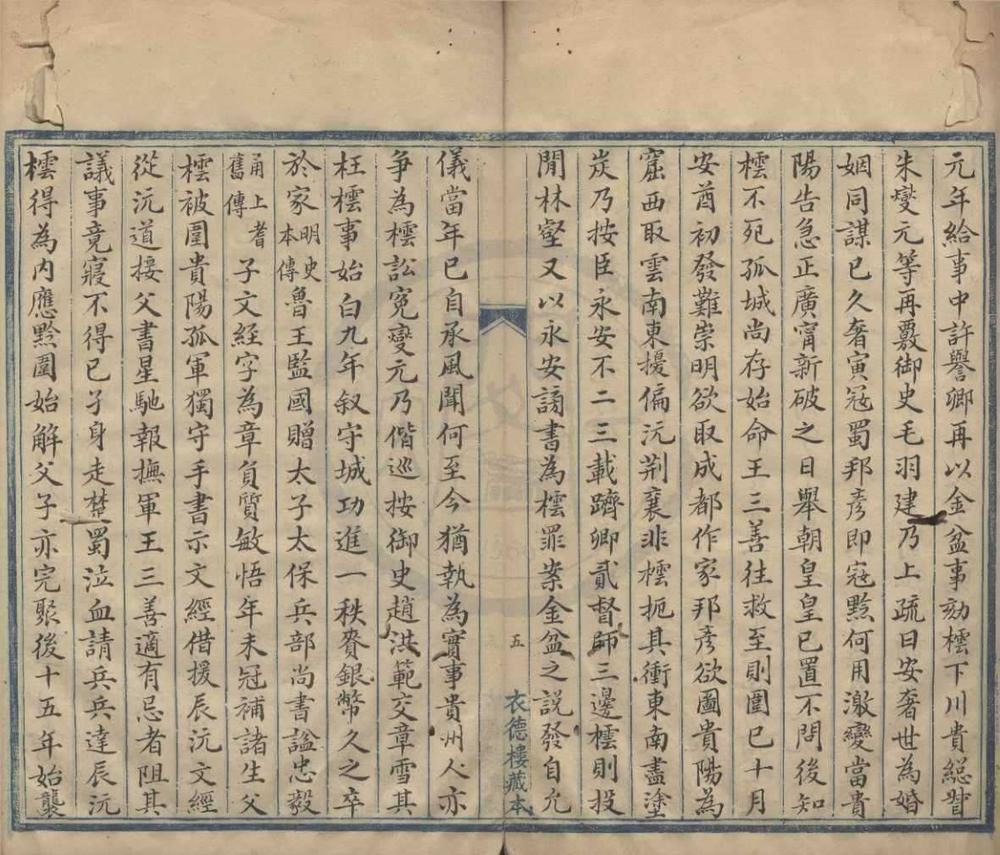 元年給事中許譽卿再以金盆事劾橒下川貴総督
朱燮元等再覈御史毛羽建乃上疏曰安奢世為婚
姻同謀已久奢寅寇蜀邦彥即寇黔何用激變當貴
陽告急正廣甯新破之日舉朝皇皇已置不問後知
橒不死孤城尚存始命王三善往救至則圍已十月
安酋初發難崇明欲取成都作家邦彥欲圖貴陽為
窟西取雲南東擾偏沅荆襄非橒扼其衝東南盡塗
炭乃按臣永安不二三載躋卿貳督師三邊橒則投
閒林壑又以永安謗書為橒罪案金盆之說發自允
儀當年已自承風聞何至今猶執為實事貴州人亦
爭為橒訟冤燮元乃偕巡按御史趙洪範交章雪其
枉橒事始白九年叙守城功進一秩賚銀幣久之卒
於家明史本傳魯王監國贈太子太保兵部尚書謚忠毅
甬上耆舊傳子文經字為章負質敏悟年未冠補諸生父
橒被圍貴陽孤軍獨守手書示文經借援辰沅文經
從沅道接父書星馳報撫軍王三善適有忌者阻其
議事竟寢不得已孑身走楚蜀泣血請兵兵達辰沅
橒得為內應黔圍始解父子亦完聚後十五年始襲
五
衣德樓藏本